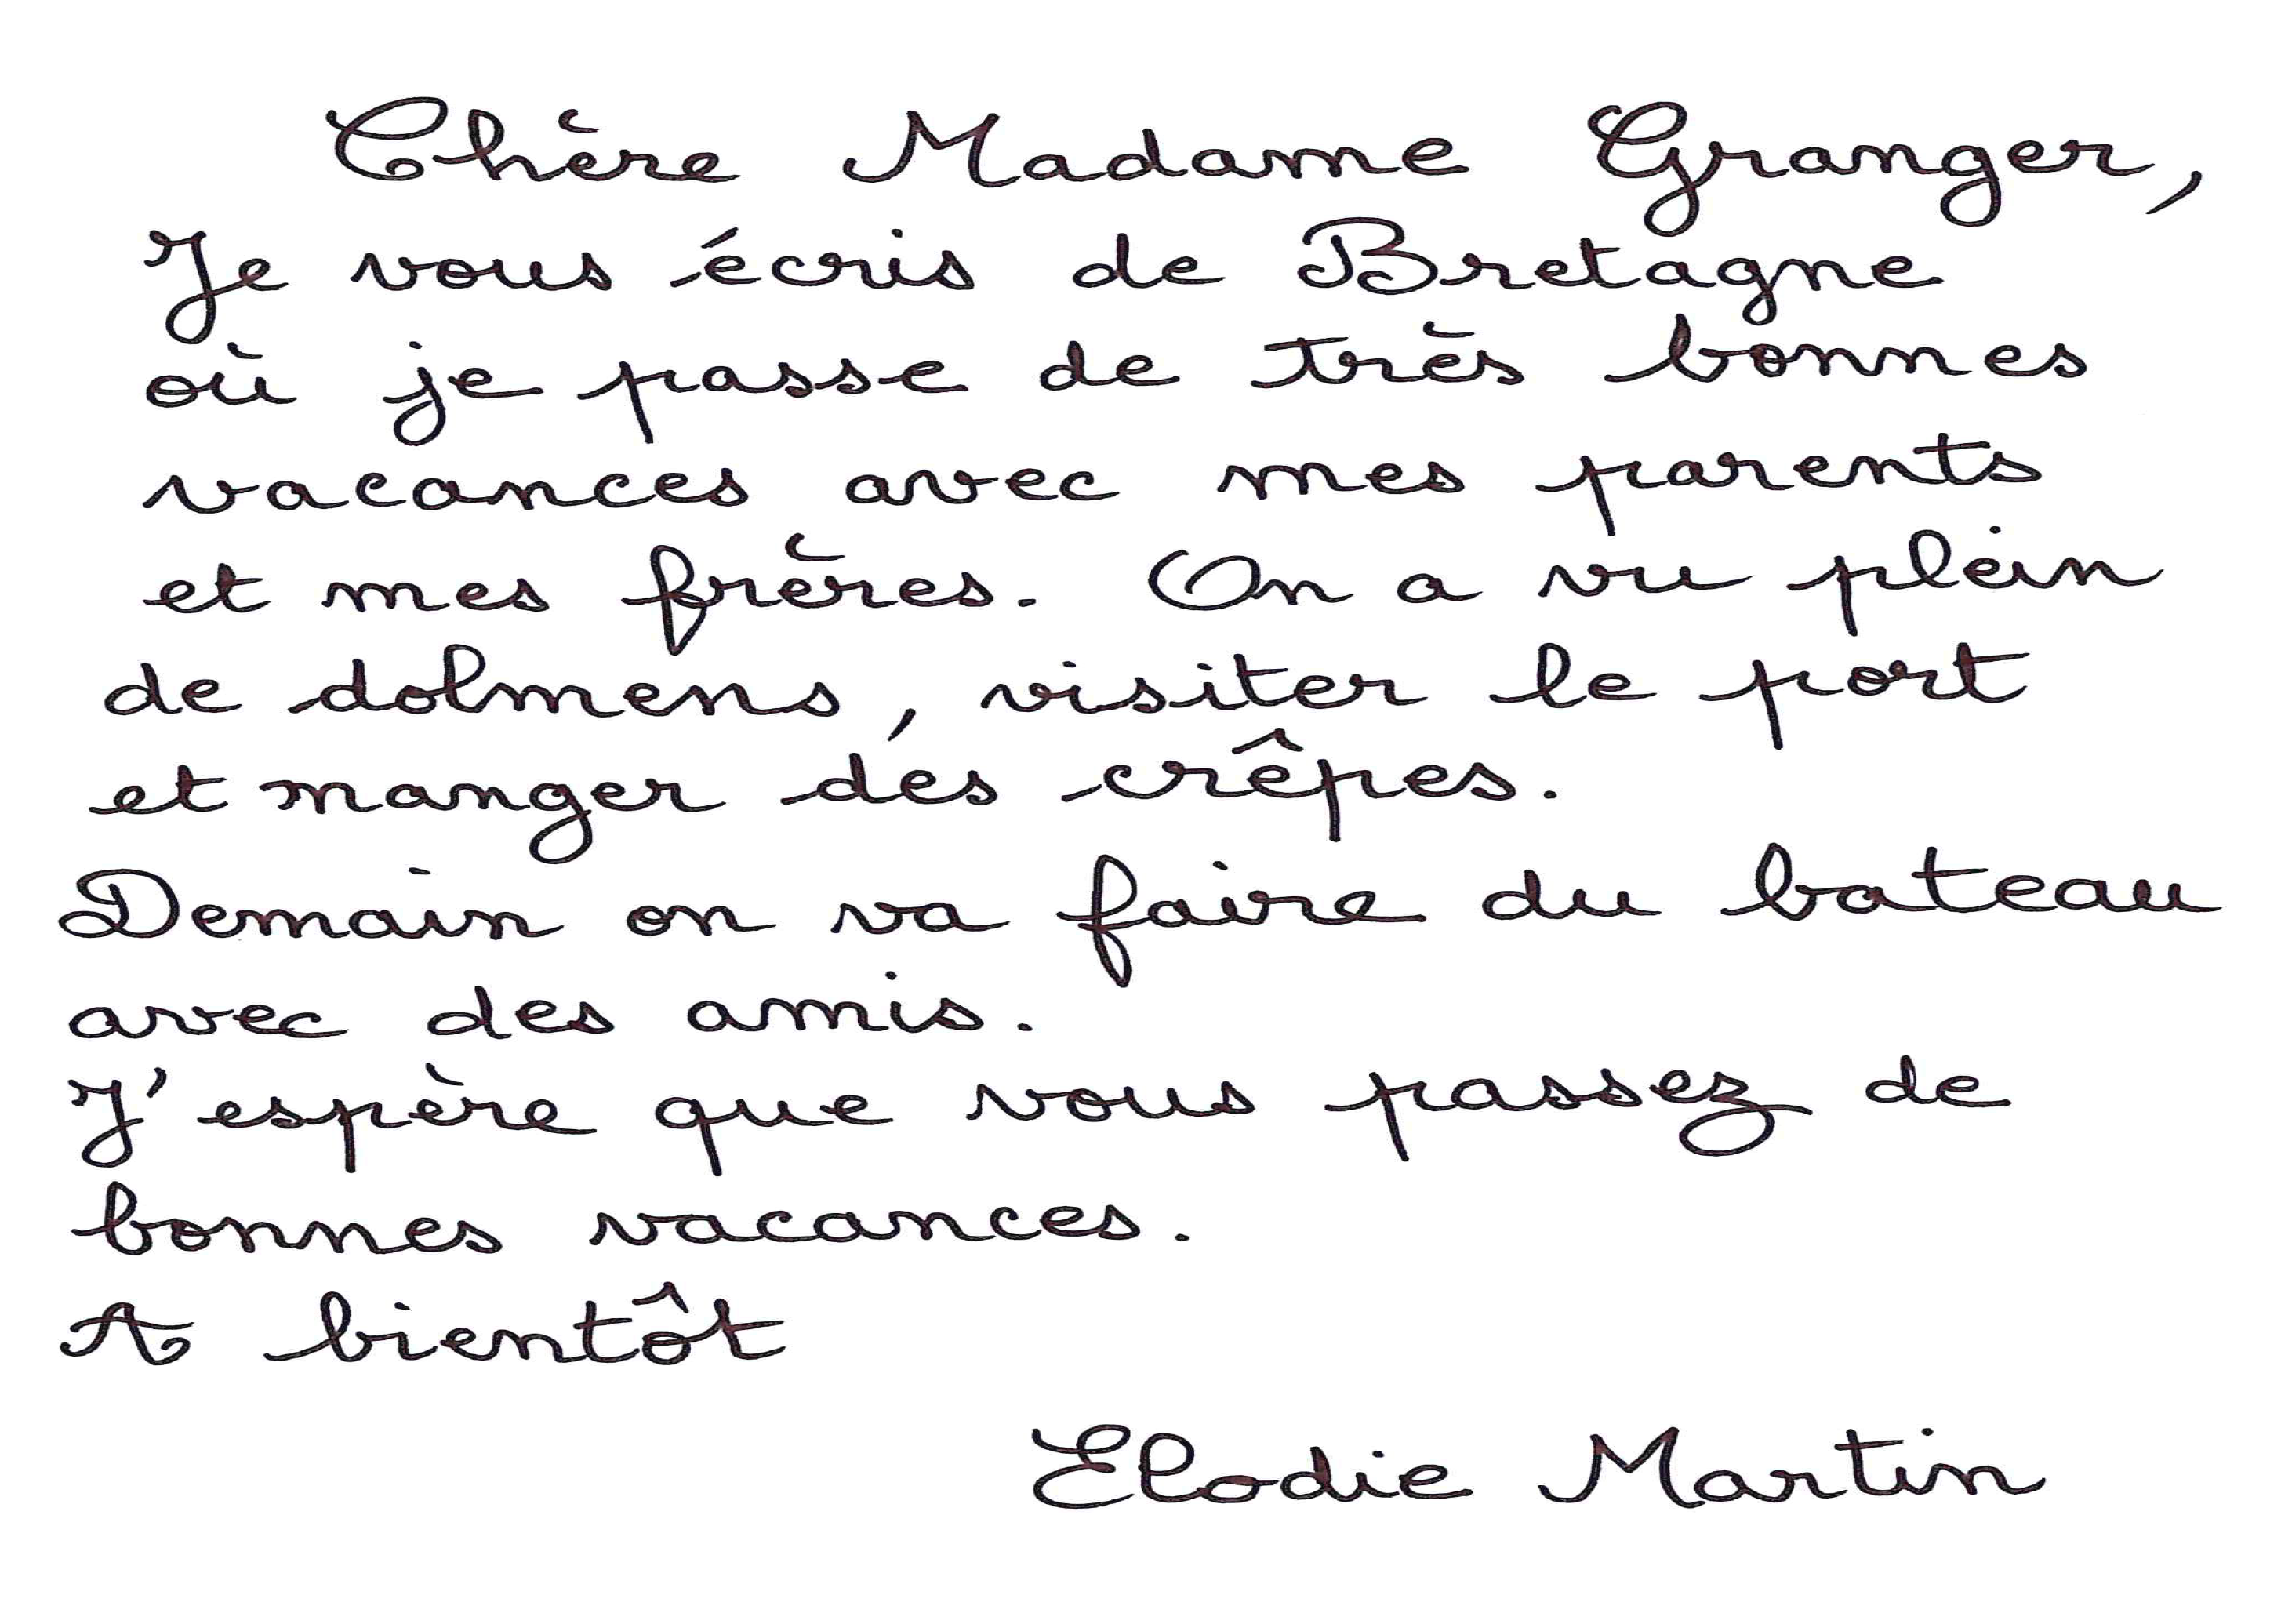 Chère Madame Granger,
Je vous écris de Bretagne
où je passe de très bonnes
vacances avec mes parents
et mes frères. On a vu plein
de dolmens, visiter le port
et manger des crêpes.
Demain on va faire du bateau
avec des amis.
J'espère que vous passez de
bonnes vacances.
A bientôt
Elodie Martin